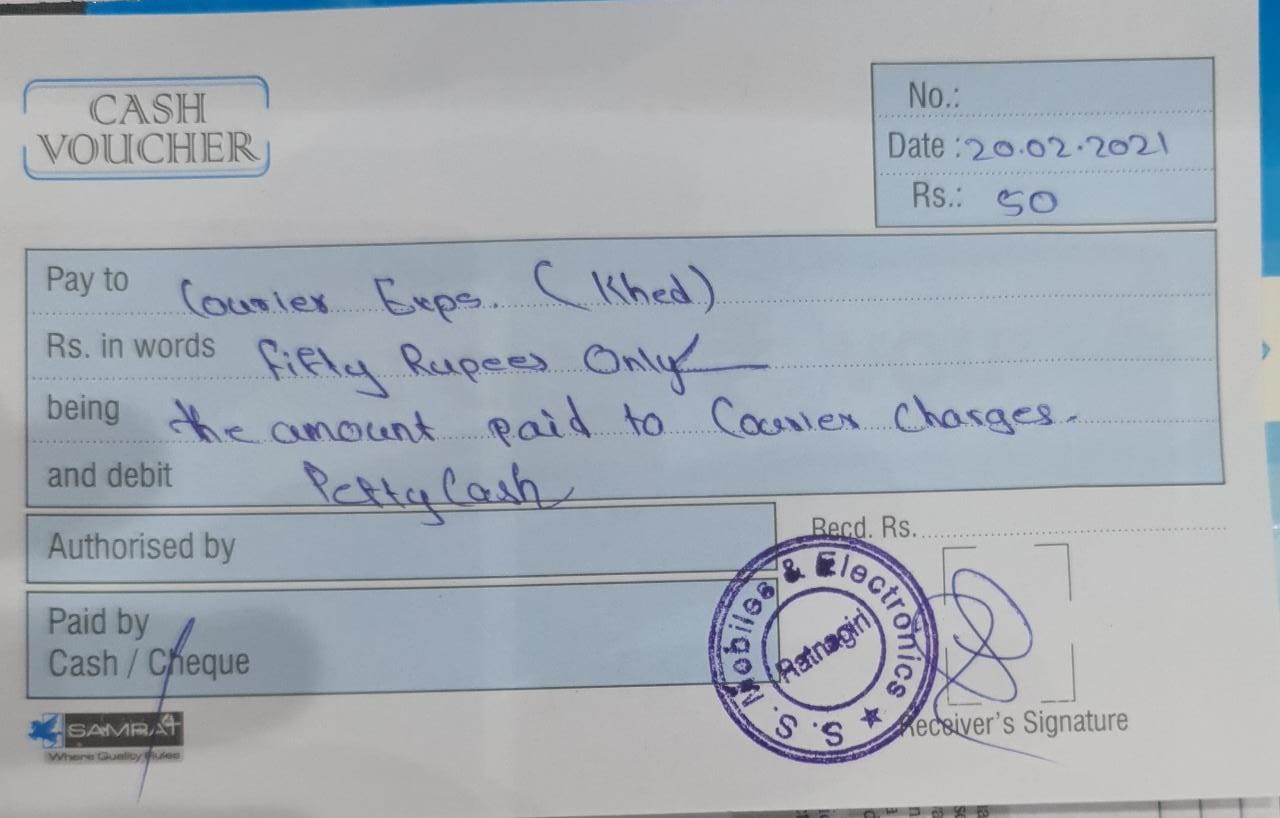 CASH
VOUCHER
No.:
Date : 20.02.2021
Rs.: 50
Pay to Courier Exps. (Khed)
Rs. in words fifty Rupees Only
being the amount paid to Courier Charges.
and debit Petty Cash
Authorised by
Recd. Rs.
Paid by
Cash / Cheque
S. S. Mobiles & Electronics ★
Ratnagiri
Receiver's Signature
SAMRAT
Where Quality Rules